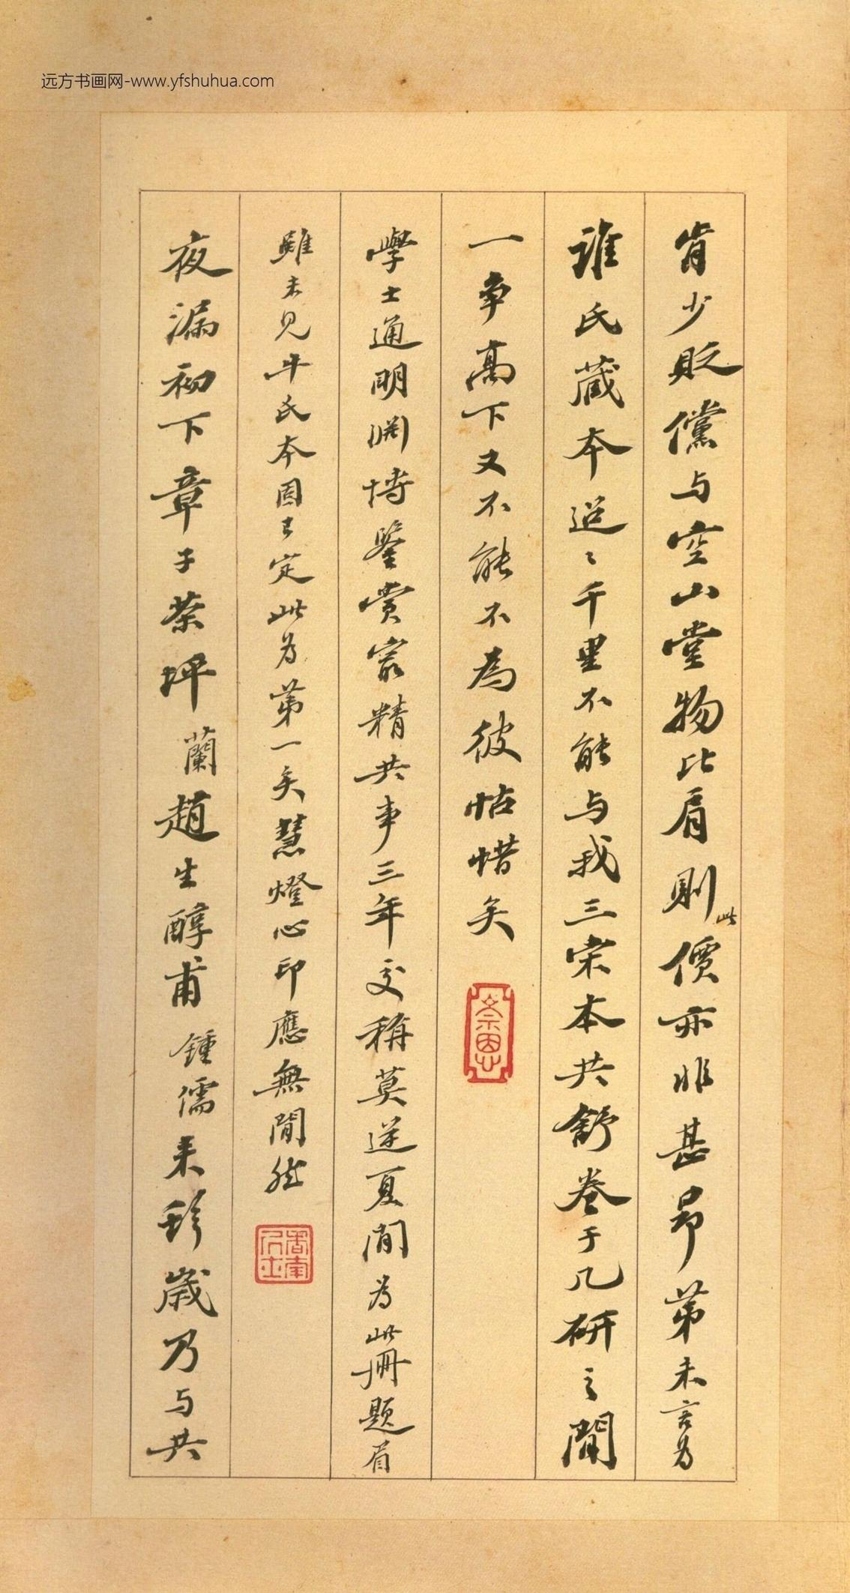 远方书画网-www.yfshuhua.com
肯少貶儻与空山堂物比肩則此價亦非甚昂第未言为
誰氏藏本迢〻千里不能与我三宋本共舒卷于几研之間
一争高下又不能不為彼帖惜矣
學士通明渊博鑒賞最精共事三年交稱莫逆夏间为此冊題眉
雖未见牛氏本固已定此为第一矣慧燈心印應無間然
夜漏初下章子茶坪蘭趙生醇甫鍾儒来移歲乃与共